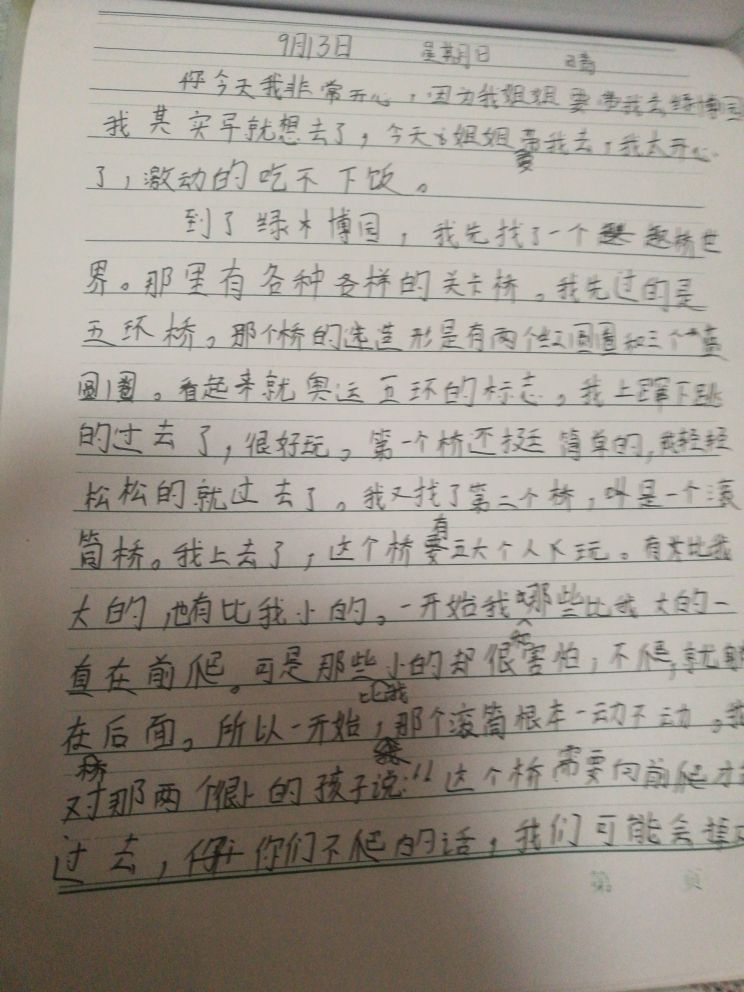 9月13日 星期日 晴
今天我非常开心,因为我姐姐要带我去绿博园
我其实早就想去了,今天姐姐要带我去,我太开心
了,激动的吃不下饭。
到了绿博园,我先找了一个趣桥世
界。那里有各种各样的关卡桥。我先过的是
五环桥。那个桥的造形是有两个红圆圈和三个蓝
圆圈。看起来就奥运五环的标志。我上蹿下跳
的过去了,很好玩。第一个桥还挺简单的,我轻轻
松松的就过去了。我又找了第二个桥,叫是一个滚
筒桥。我上去了,这个桥有五六个人在玩。有比我
大的,也有比我小的。一开始我和那些比我大的一
直在前爬。可是那些比我小的却很害怕,不爬,就
在后面。所以一开始,那个滚筒桥根本一动不动。我
对那两个很小的孩子说:“这个桥需要向前爬才
过去,你们不爬的话,我们可能会掉
第 页